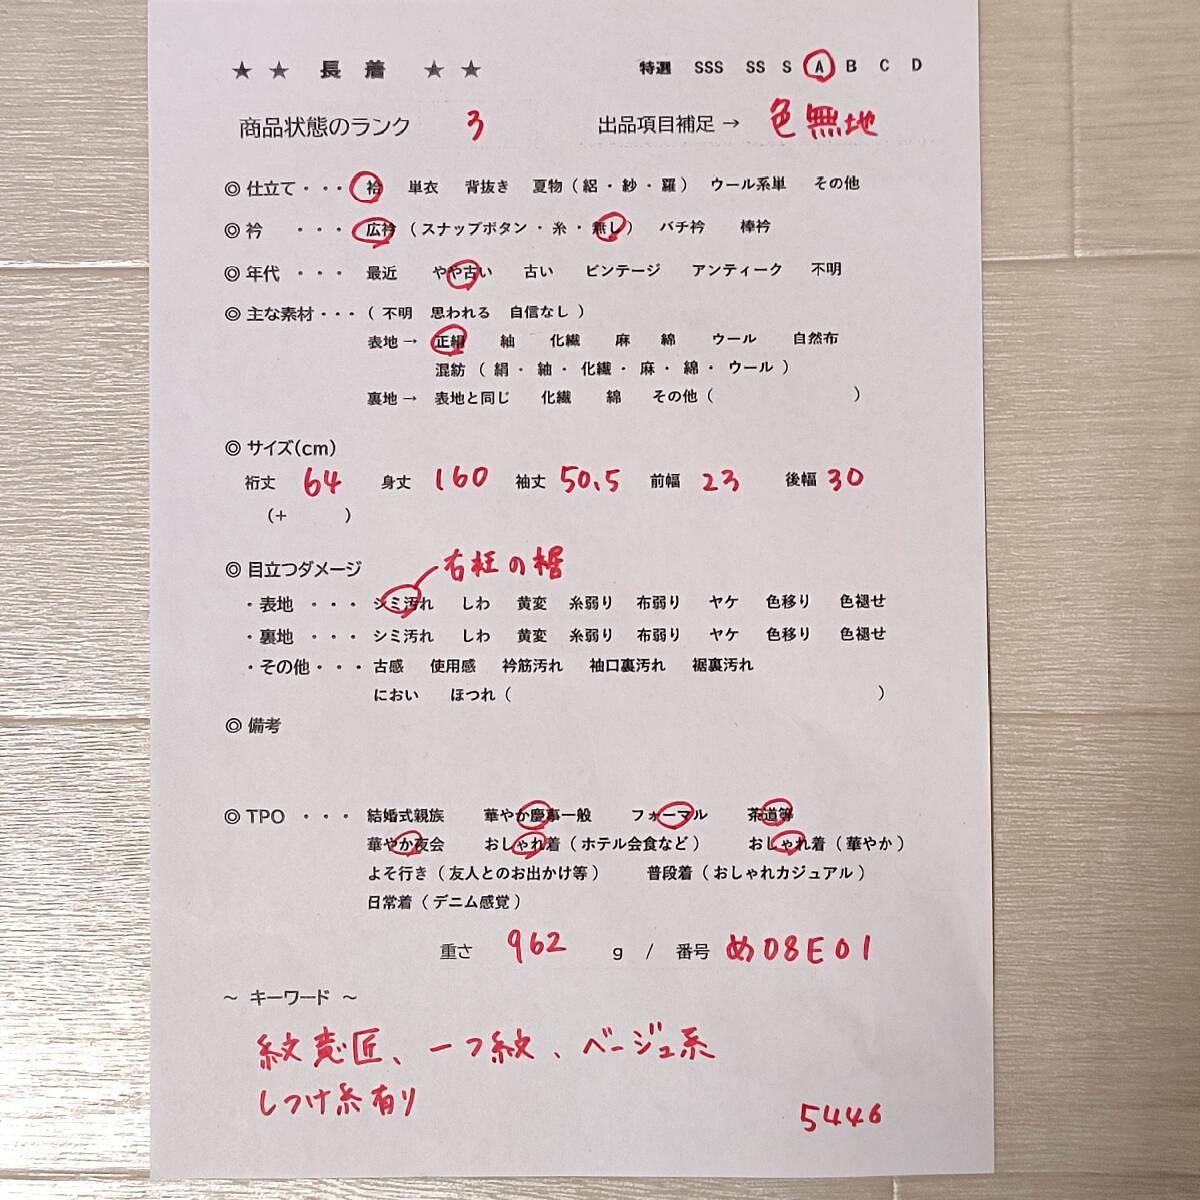 ★ ★ 長 着 ★ ★ 特選 SSS SS S A B C D
商品状態のランク 3 出品項目補足→ 色無地
◎ 仕立て・・・ 袷 単衣 背抜き 夏物(絽・紗・羅) ウール系単 その他
◎ 衿 ・・・ 広衿 (スナップボタン・糸・無し) バチ衿 棒衿
◎ 年代 ・・・ 最近 やや古い 古い ビンテージ アンティーク 不明
◎ 主な素材・・・(不明 思われる 自信なし)
表地→ 正絹 紬 化繊 麻 綿 ウール 自然布
混紡(絹・紬・化繊・麻・綿・ウール)
裏地→ 表地と同じ 化繊 綿 その他( )
◎ サイズ(cm)
裄丈 64 身丈 160 袖丈 50.5 前幅 23 後幅 30
(+ )
◎ 目立つダメージ 右衽の裾
・表地 ・・・ シミ汚れ しわ 黄変 糸弱り 布弱り ヤケ 色移り 色褪せ
・裏地 ・・・ シミ汚れ しわ 黄変 糸弱り 布弱り ヤケ 色移り 色褪せ
・その他・・・ 古感 使用感 衿筋汚れ 袖口裏汚れ 裾裏汚れ
におい ほつれ( )
◎ 備考
◎ TPO ・・・ 結婚式親族 華やか慶事一般 フォーマル 茶道等
華やか夜会 おしゃれ着(ホテル会食など) おしゃれ着(華やか)
よそ行き(友人とのお出かけ等) 普段着(おしゃれカジュアル)
日常着(デニム感覚)
重さ 962 g / 番号 め08E01
～ キーワード ～
紋意匠、一つ紋、ベージュ系
しつけ糸有り
5446